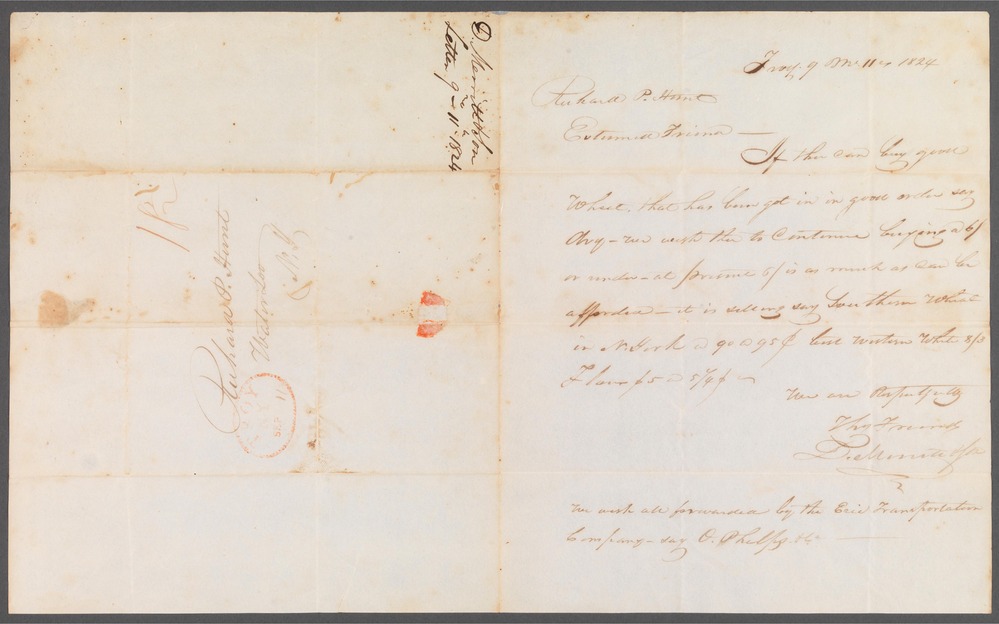 Troy. 9 Mo 11th 1824
Richard P. Hunt
Esteemed Friend —
If thee can buy good
Wheat that has been got in in good order say
dry – we wish thee to Continue buying @ 6/
or under – at present 6/ is as much as can be
afforded – it is selling say Southern Wheat
in N. York @ 90 @ 95 ¢ best western White 8/3
Flour $5 @ 5 1/4 $ –
We are Respectfully
Thy Friends
D. Merritt & Son
We wish all forwarded by the Erie Transportation
Company – say O. Phelps &Co
D. Merritt & Son
Letter 9 – 11 1824
Richard P. Hunt
Waterloo
N.Y
TROY
SEP 11